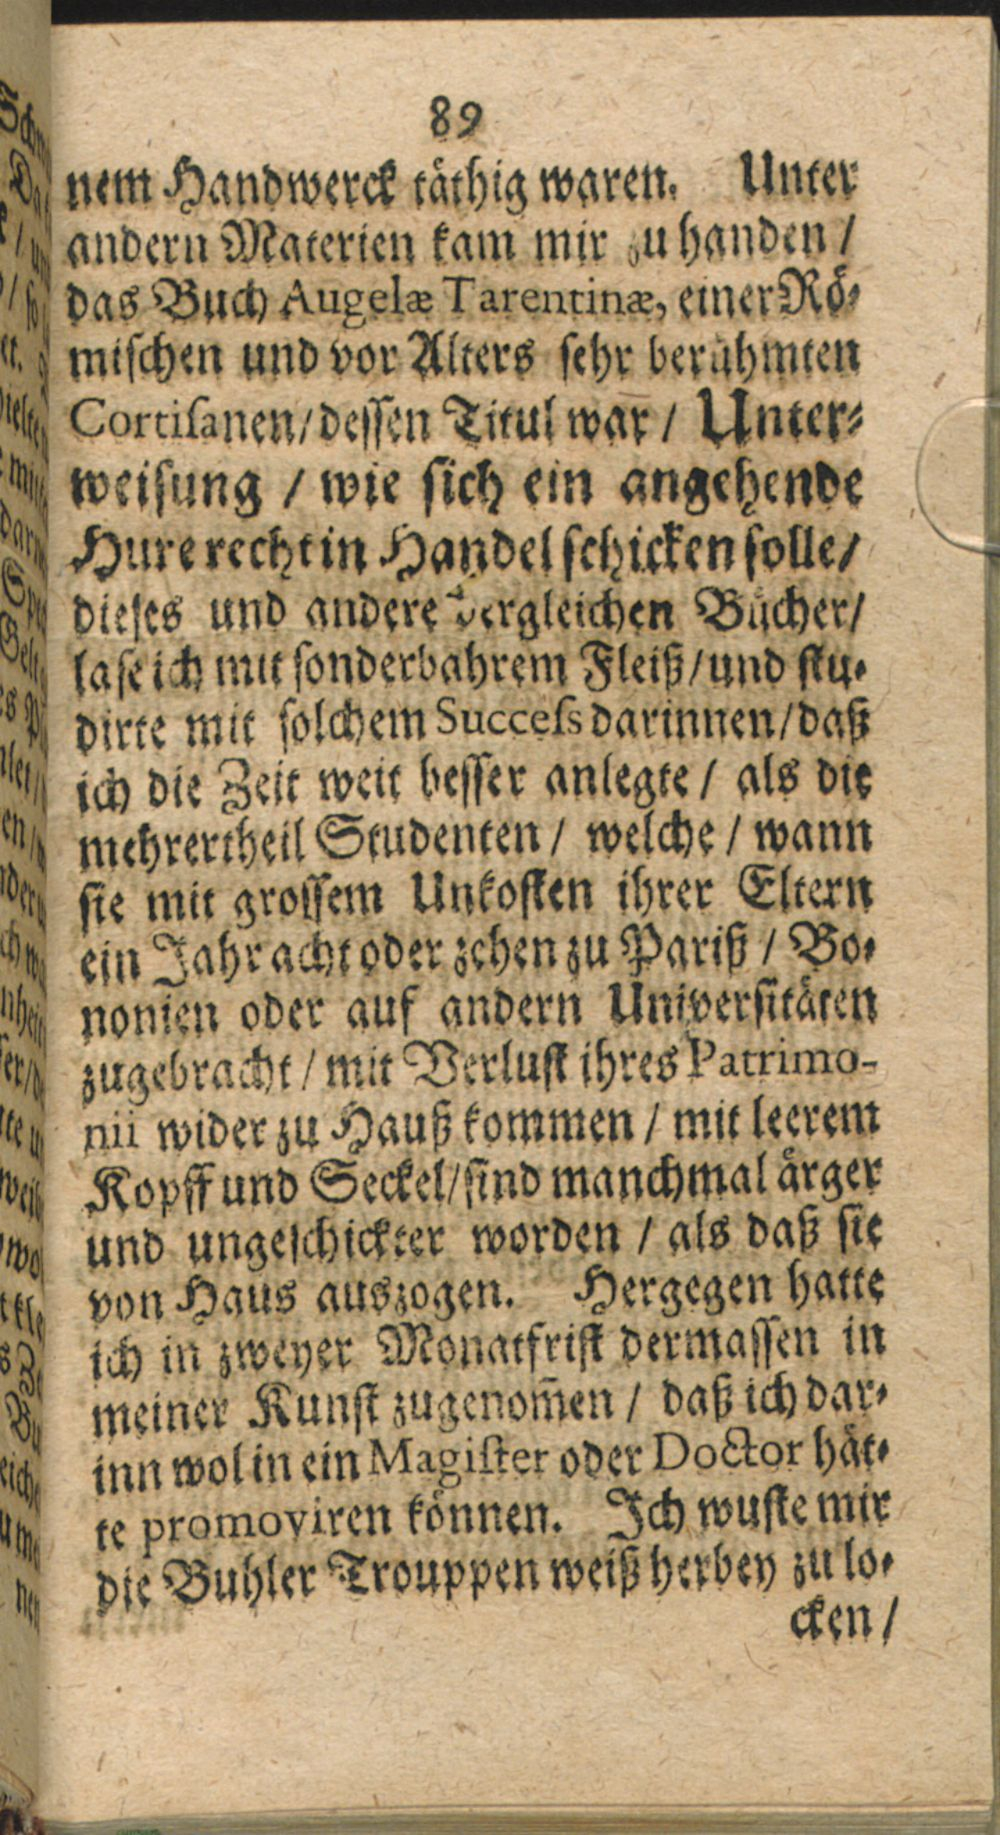 89
nem Handwerck täthig waren. Unter
andern Materien kam mir zu handen /
das Buch Augelæ Tarentinæ, einer Rö-
mischen und vor Alters sehr berühmten
Cortiſanen / dessen Titul war / Unter-
weisung / wie sich ein angehende
Hure recht in Handel schicken solle /
dieses und andere dergleichen Bücher /
lase ich mit sonderbahrem Fleiß / und stu-
dirte mit solchem Succeſs darinnen / daß
ich die Zeit weit besser anlegte / als die
mehrertheil Studenten / welche / wann
sie mit grossem Unkosten ihrer Eltern
ein Jahr acht oder zehen zu Pariß / Bo-
nonien oder auf andern Universitäten
zugebracht / mit Verlust ihres Patrimo-
nii wider zu Hauß kommen / mit leerem
Kopff und Seckel / sind manchmal ärger
und ungeschickter worden / als daß sie
von Haus auszogen. Hergegen hatte
ich in zweyer Monatfrist dermassen in
meiner Kunst zugenom̃en / daß ich dar-
inn wol in ein Magiſter oder Doctor hät-
te promoviren können. Ich wuste mir
die Buhler Trouppen weiß herbey zu lo-
cken /